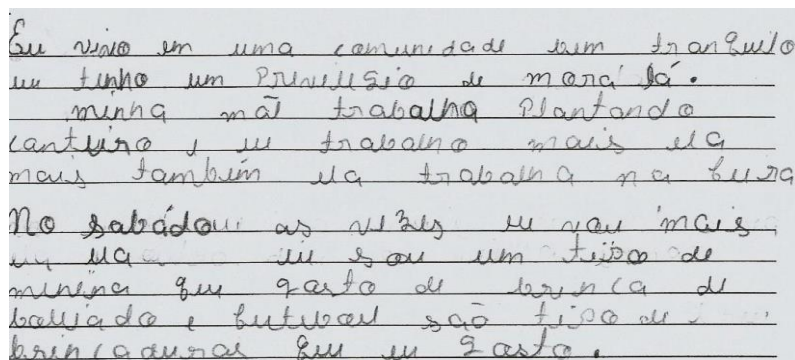 Eu vivo em uma comunidade bem tranquilo
eu tenho um Privilegio de mora lá.
minha mãe trabalha Plantando
canteiro e eu trabalho mais ela
mais também ela trabalha na feira
No sabádo as vezes eu vou mais
ela eu sou um tipo de
minina que gosto de brinca de
baliado e futibou são tipo de
brincaduras que eu gosto.